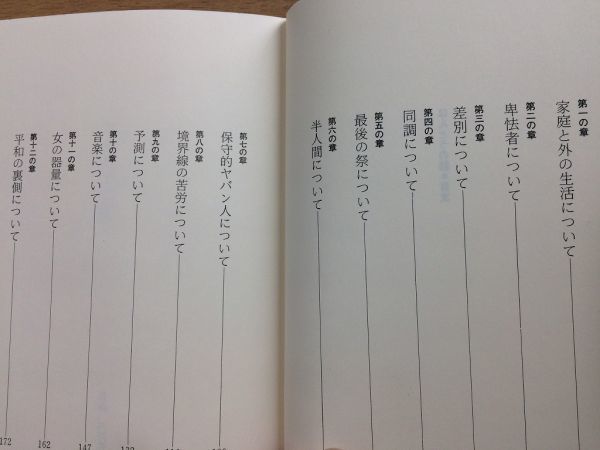 第一の章
家庭と外の生活について
第二の章
卑怯者について
第三の章
差別について
第四の章
同調について
第五の章
最後の祭について
第六の章
半人間について
第七の章
保守的ヤバン人について
第八の章
境界線の苦労について
第九の章
予測について
第十の章
音楽について
147
第十一の章
女の器量について
162
第十二の章
平和の裏側について
172